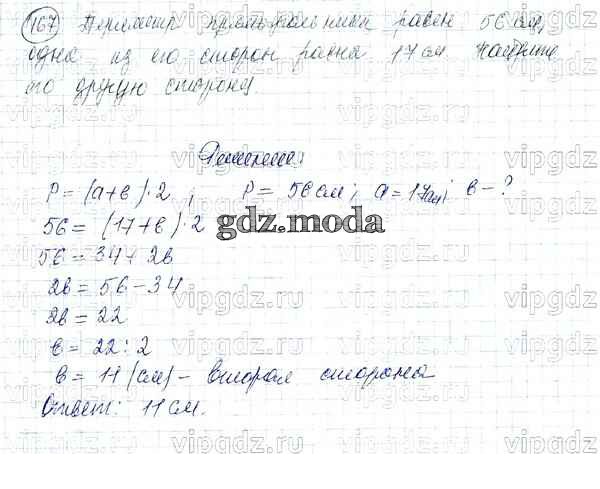 167 Периметр прямоугольника равен 56 см,
одна из его сторон равна 17 см Найдите
его другую сторону.
Решение:
P = (a+b)·2 ; P = 56 см ; a = 17см; b - ?
56 = (17+b)·2
gdz.moda
56 = 34 + 2b
2b = 56 - 34
2b = 22
b = 22 : 2
b = 11 (см) - вторая сторона
Ответ: 11 см.
vipgdz.ru